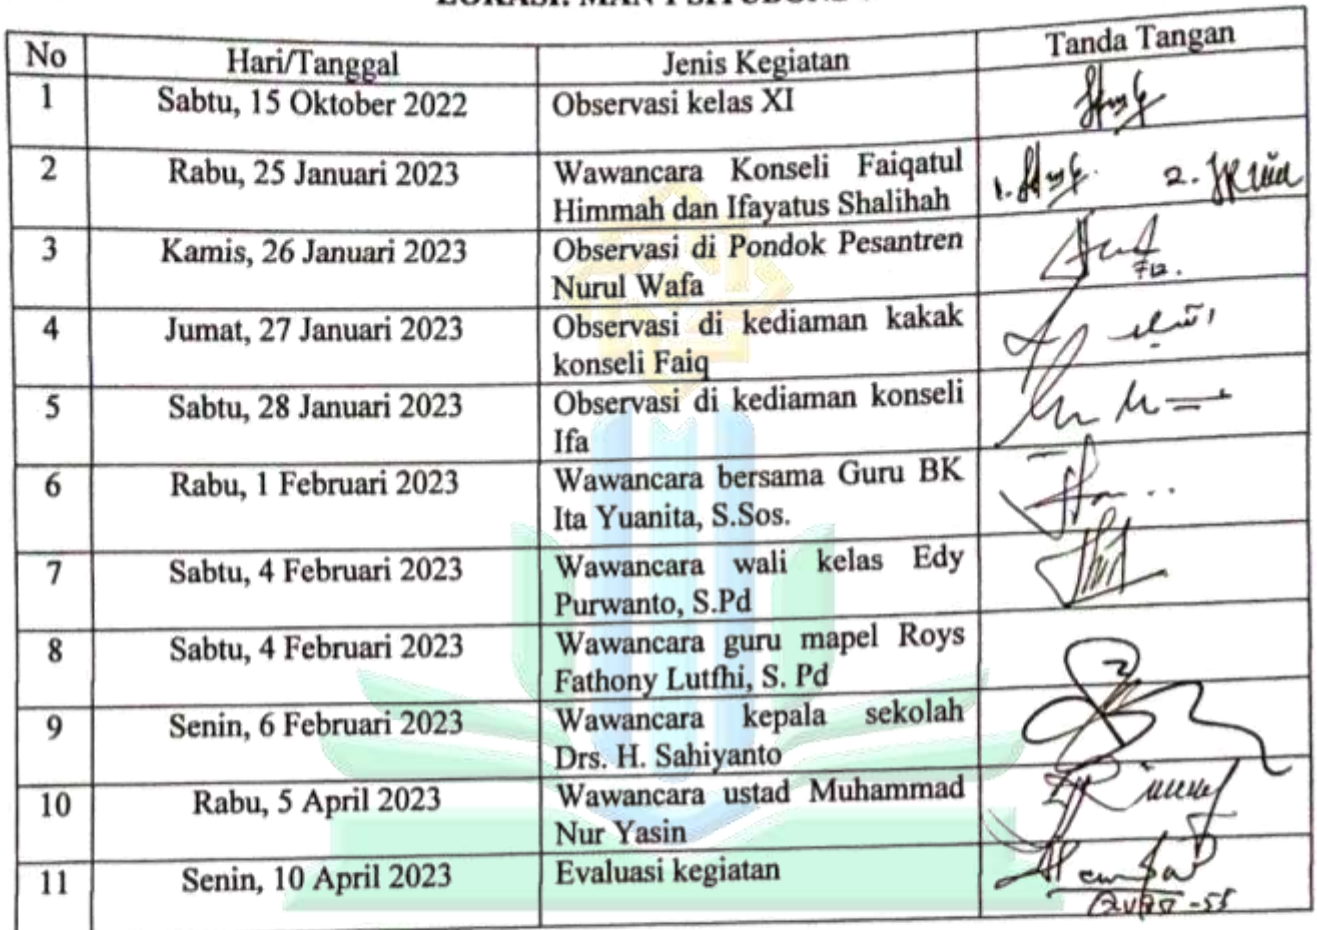 No Hari/Tanggal Jenis Kegiatan Tanda Tangan
1 Sabtu, 15 Oktober 2022 Observasi kelas XI
2 Rabu, 25 Januari 2023 Wawancara Konseli Faiqatul
Himmah dan Ifayatus Shalihah
1. 2.
3 Kamis, 26 Januari 2023 Observasi di Pondok Pesantren
Nurul Wafa
4 Jumat, 27 Januari 2023 Observasi di kediaman kakak
konseli Faiq
5 Sabtu, 28 Januari 2023 Observasi di kediaman konseli
Ifa
6 Rabu, 1 Februari 2023 Wawancara bersama Guru BK
Ita Yuanita, S.Sos.
7 Sabtu, 4 Februari 2023 Wawancara wali kelas Edy
Purwanto, S.Pd
8 Sabtu, 4 Februari 2023 Wawancara guru mapel Roys
Fathony Lutfhi, S. Pd
9 Senin, 6 Februari 2023 Wawancara kepala sekolah
Drs. H. Sahiyanto
10 Rabu, 5 April 2023 Wawancara ustad Muhammad
Nur Yasin
11 Senin, 10 April 2023 Evaluasi kegiatan